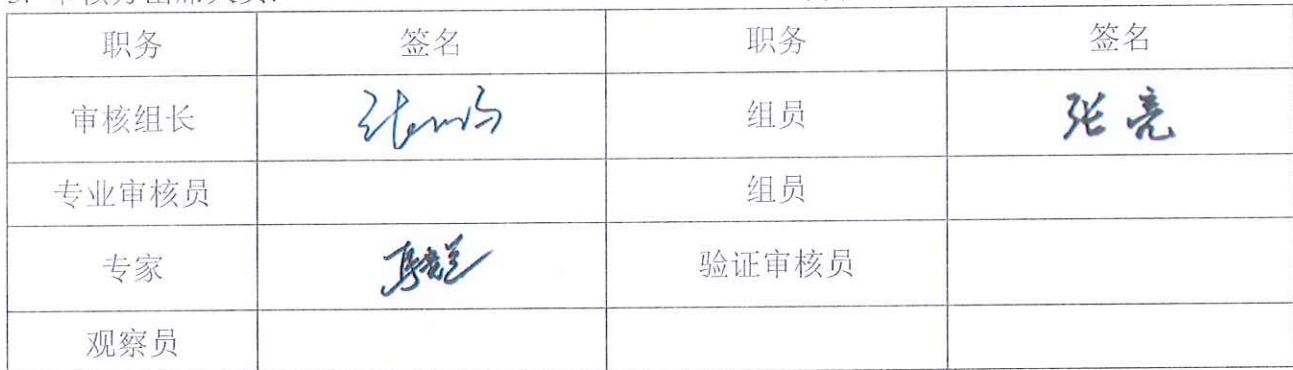 职务 签名 职务 签名
审核组长 组员 张亮
专业审核员 组员
专家 验证审核员
观察员